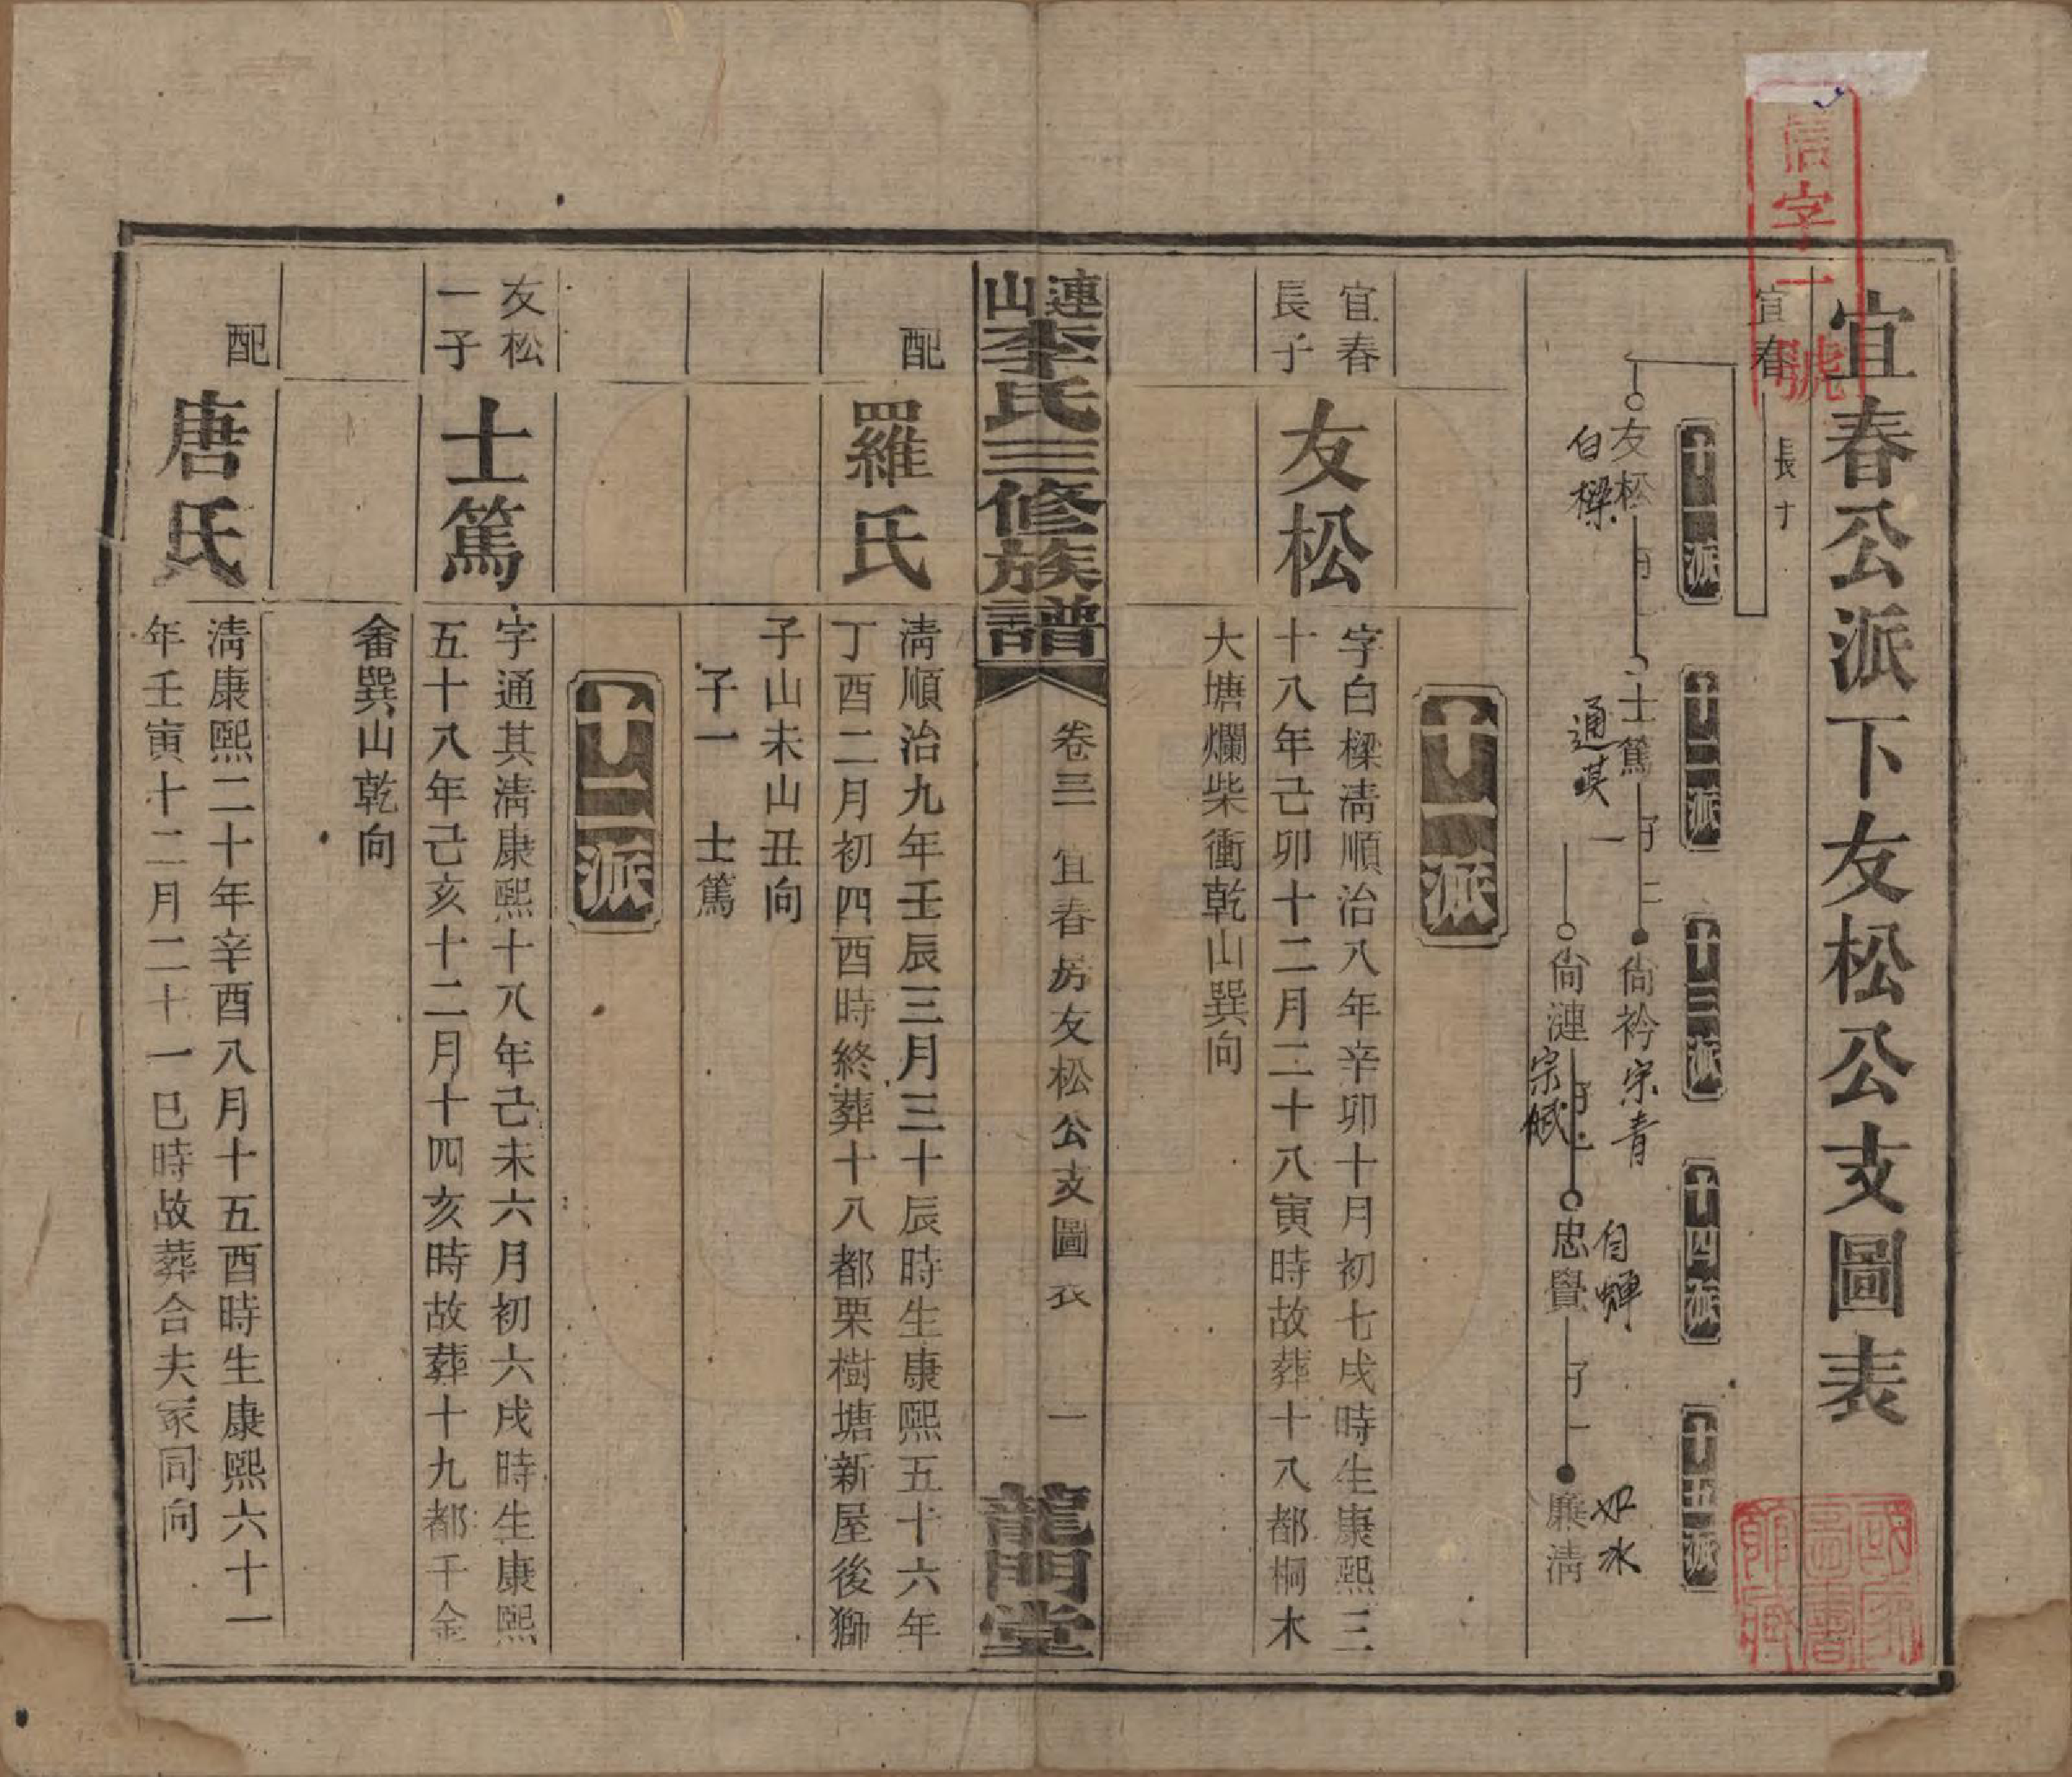 信字一號
宜春公派下友松公支圖表
宜春
長子
十一派
十二派
十三派
十四派
十五派
友松
白樑
士篤
通其
子二
尙衿
宗青
一
尙漣
宗斌
忠釁
自蟬
子一
廉淸
如水
十一派
宜春
長子
友松
字白樑淸順治八年辛卯十月初七戌時生康熙三
十八年己卯十二月二十八寅時故葬十八都桐木
大塘爛柴衝乾山巽向
連山李氏三修族譜
卷三
宜春房友松公支圖表
一
龍門堂
配
羅氏
淸順治九年壬辰三月三十辰時生康熙五十六年
丁酉二月初四酉時終葬十八都栗樹塘新屋後獅
子山未山丑向
子一　士篤
十二派
友松
一子
士篤
字通其淸康熙十八年己未六月初六戌時生康熙
五十八年己亥十二月十四亥時故葬十九都千金
畬巽山乾向
配
唐氏
淸康熙二十年辛酉八月十五酉時生康熙六十一
年壬寅十二月二十一巳時故葬合夫冢同向